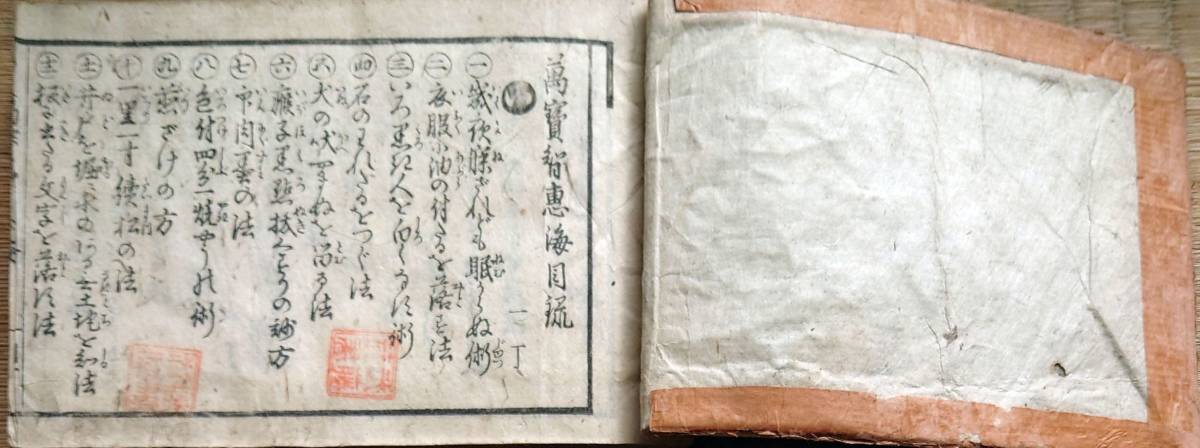 萬寶智恵海目録
一丁
㊀幾夜寐ざれども眠からぬ術
㊁衣服に油の付たるを落す法
㊂いろ黒き人を白くする術
㊃石のわれたるをつぐ法
犬の吠ぬを
㊅疣子黒点抜くすりの妙方
㊆印肉の法
㊇色付四分一焼やうの術
㊈ざけの方
㊉一里一寸續松の法
井を堀に水の土地を知法
板に書たる文字を落す法